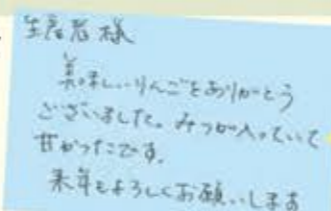 生産者様
美味しいりんごをありがとう
ございました。みつが入っていて
甘かったです。
来年もよろしくお願いします